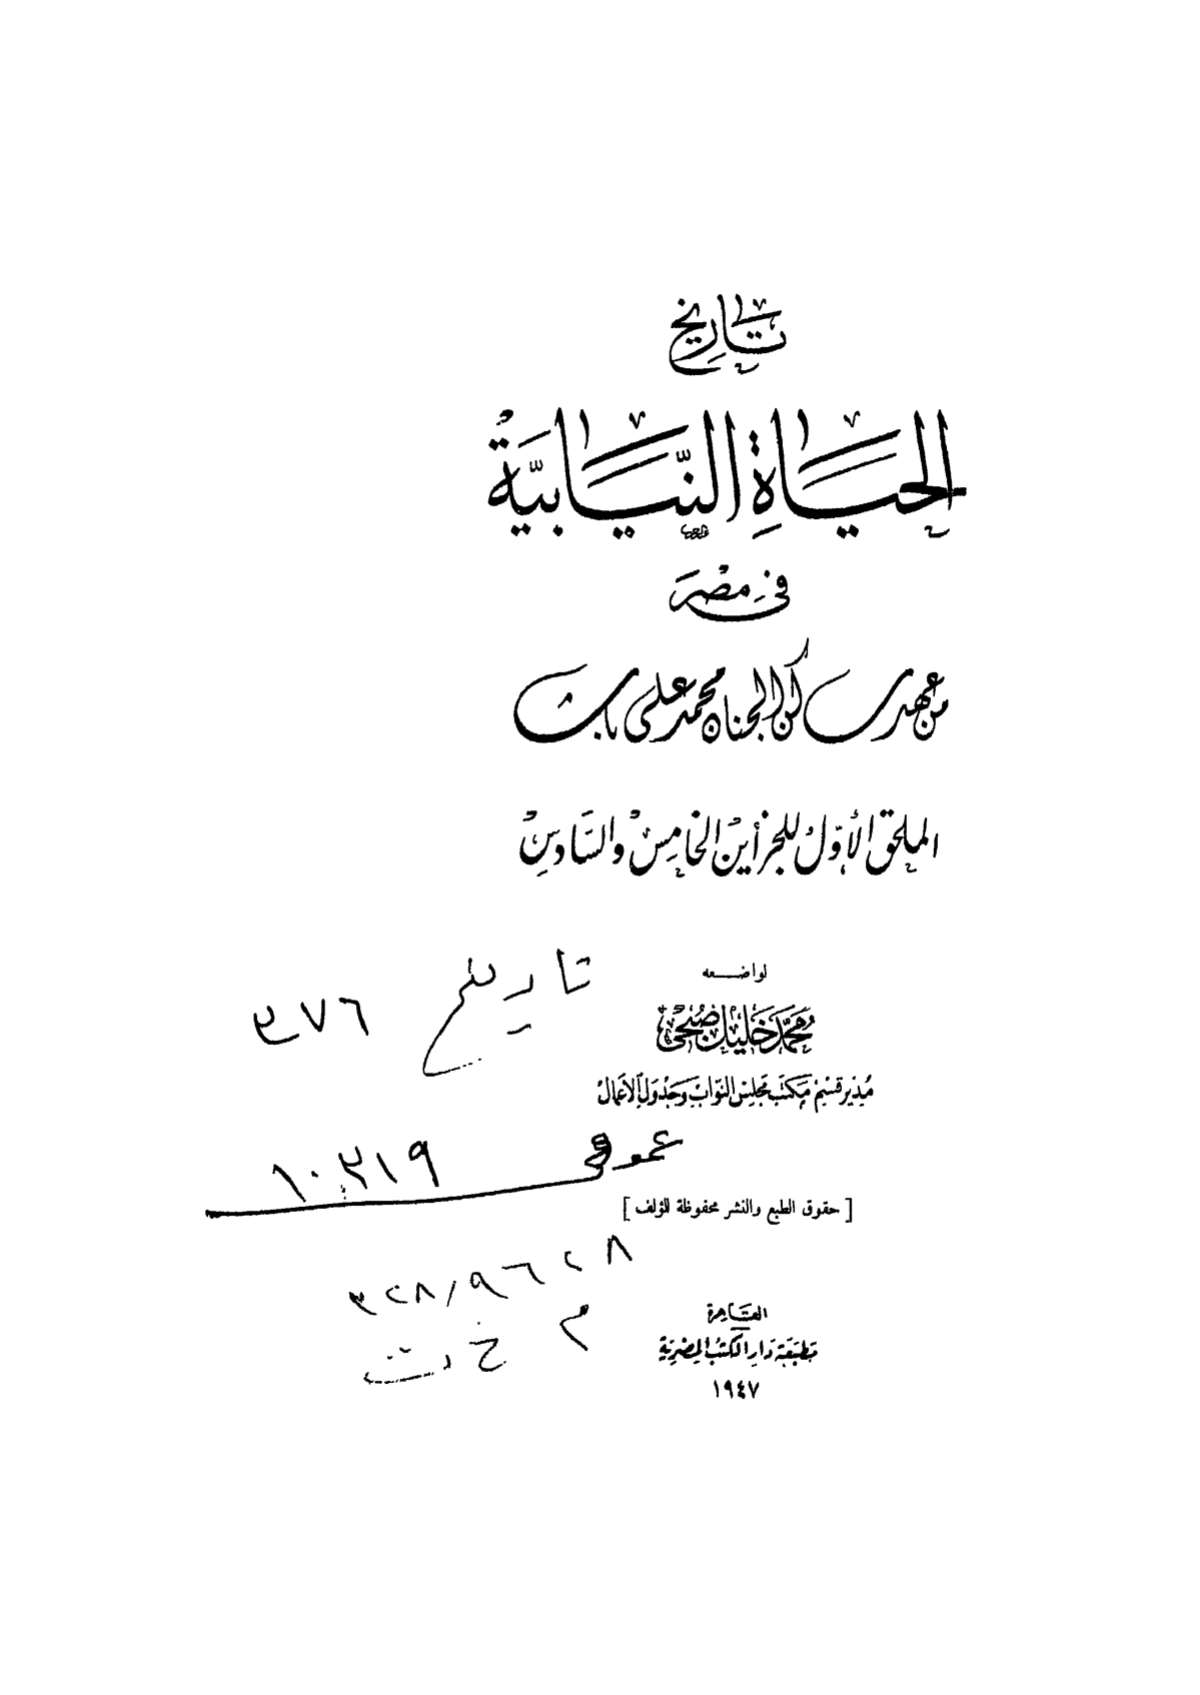 تاريخ
الحياة النيابية
فى مصر
من عهد ساكن الجنان محمد على باشا
الملحق الأول للجزأين الخامس والسادس
لواضعه
محمد خليل صبحى
مدير قسم مكتب مجلس النواب وجدول الأعمال
تاريخ ٣٧٦
عمومى ١٠٢١٩
[ حقوق الطبع والنشر محفوظة للمؤلف ]
٣٢٨٫٩٦٢٨
م خ ت
القاهرة
مطبعة دار الكتب المصرية
١٩٤٧